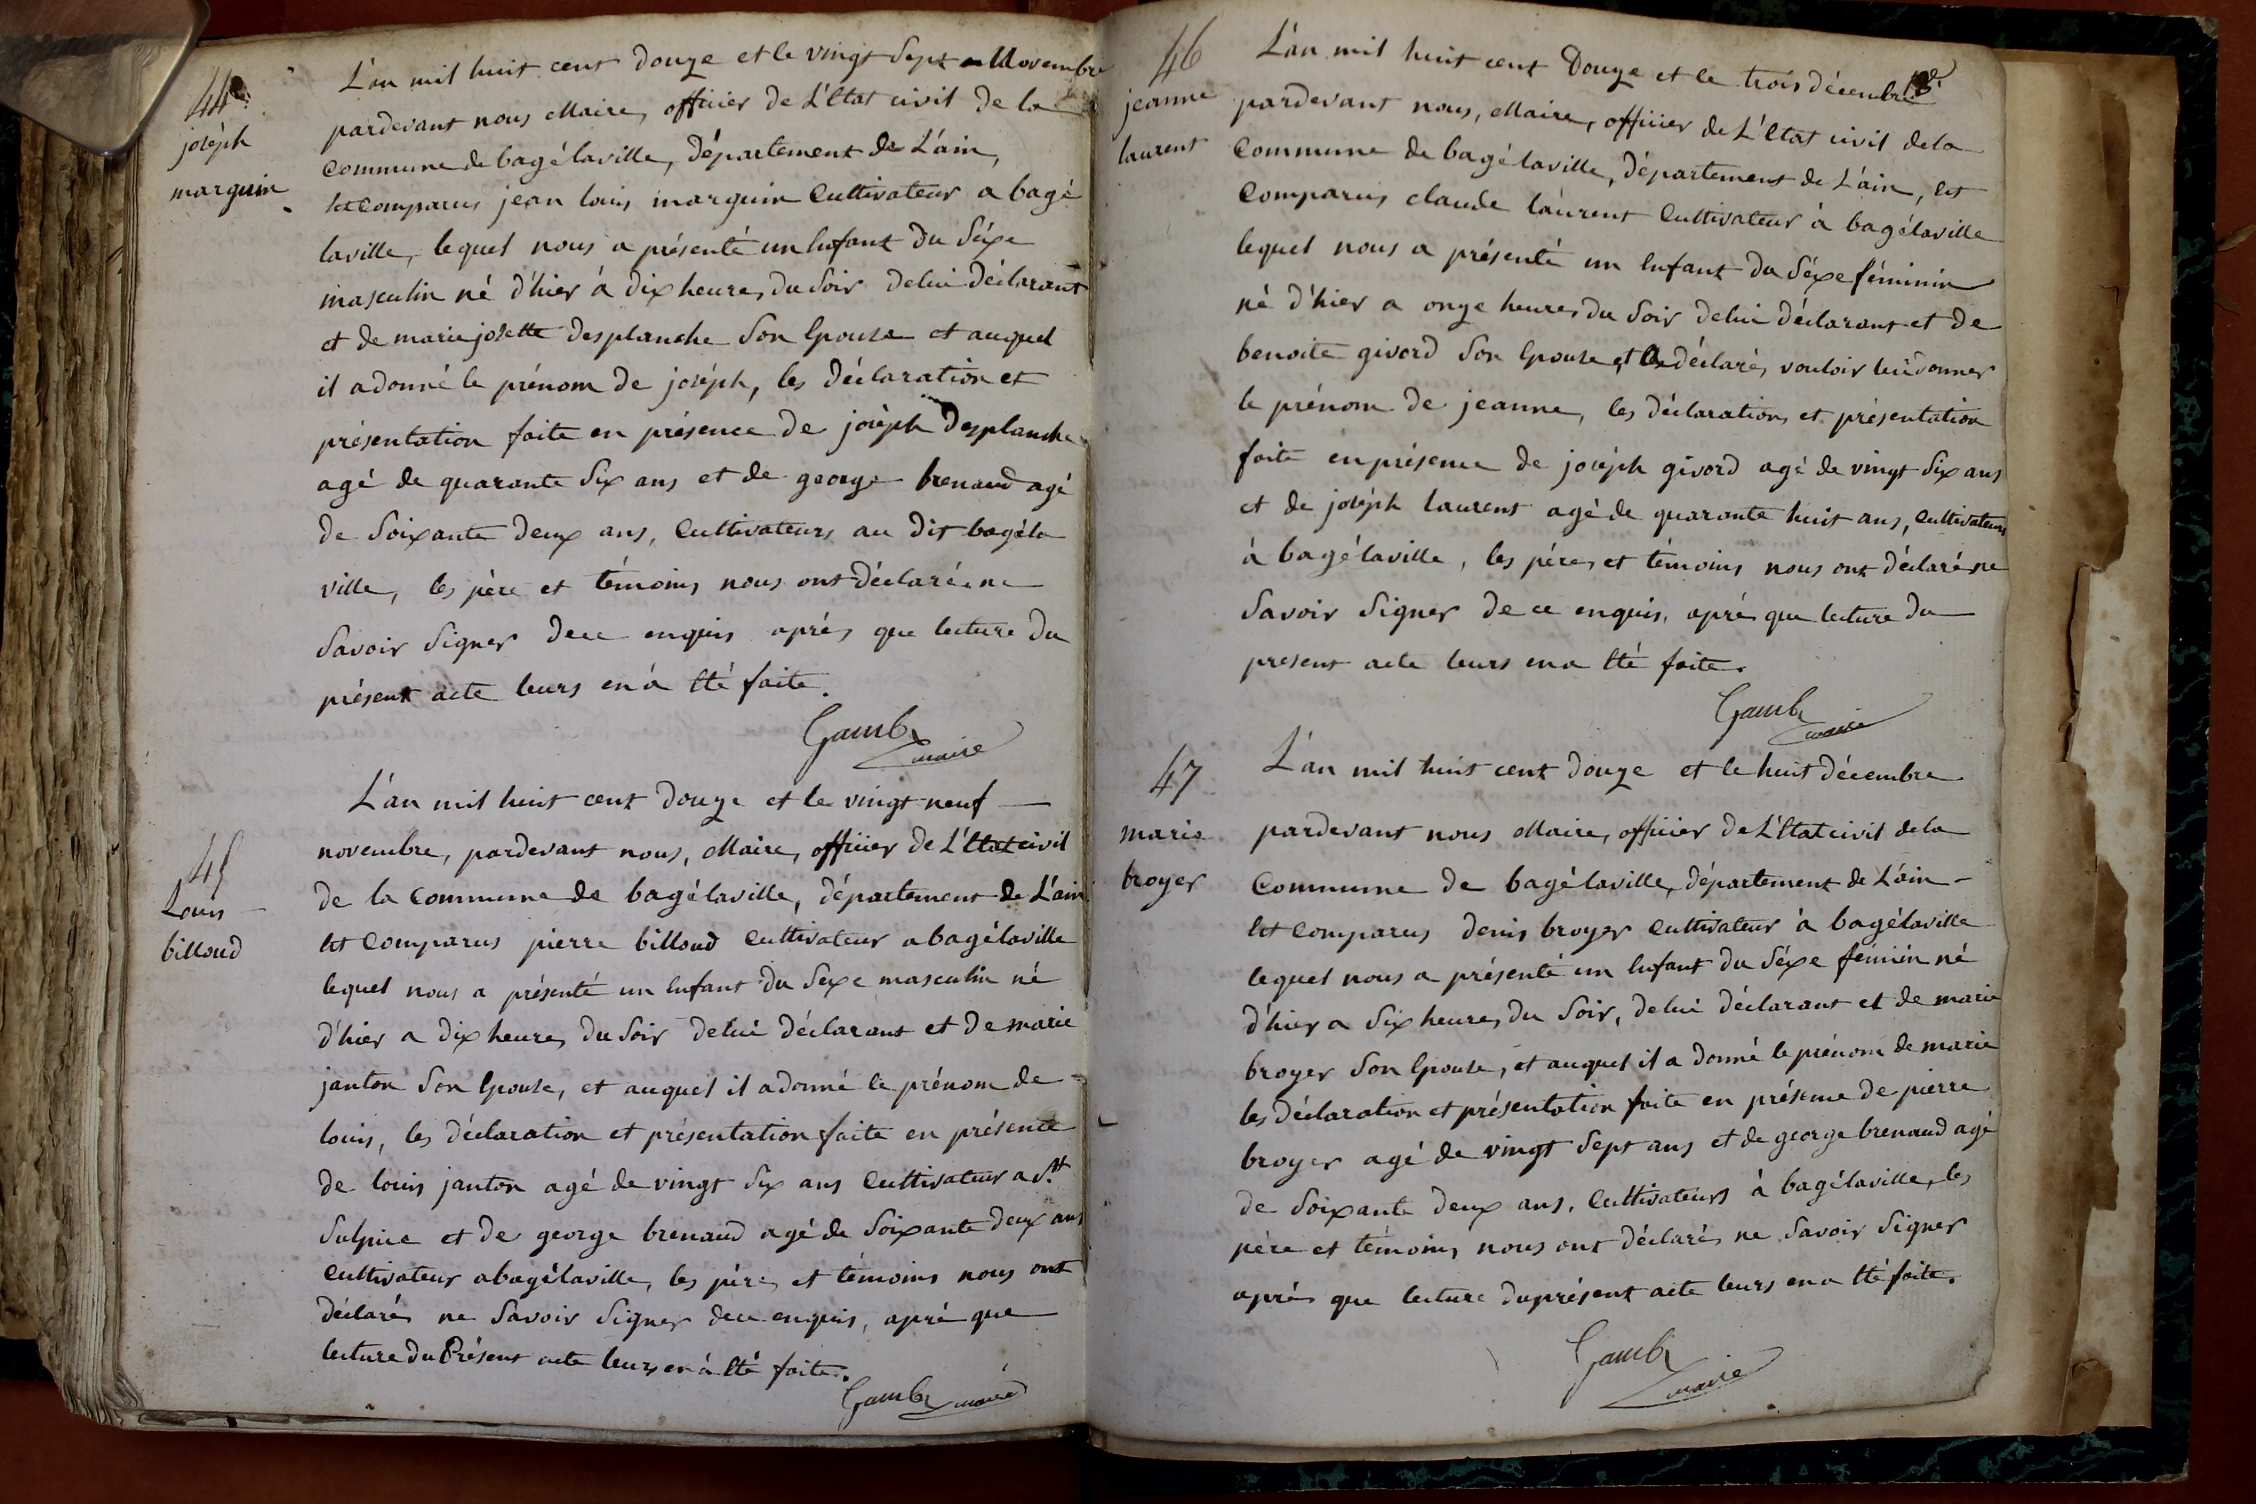 44
joséph
marguin
L'an mil huit cent douze et le vingt sept Novembre
pardevant nous Maire, officier de L'Etat civil de la
Commune de bagélaville, Département de L'ain,
Est Comparus jean louis marguin Cultivateur a bagé
laville, lequel nous a présenté un Enfant du Séxe
masculin né d'hier à dix heures du Soir de lui déclarant
et de marie josette desplanche Son Epouse et auquel
il a donné le prénom de joséph, les déclaration et
présentation faite en présence de joséph desplanche
agé de quarante Six ans et de george brenaud agé
de Soixante deux ans, Cultivateurs au dit bagéla
ville, les père et témoins nous ont déclarés ne
Savoir Signer de ce enquis après que lecture du
présent acte leurs en à Eté faite.
Gamb
maire
45
Louis
billoud
L'an mil huit cent douze et le vingt neuf
novembre, pardevant nous, Maire, officier de L'Etat civil
de la Commune de bagélaville, département de L'ain
Est Comparus pierre billoud Cultivateur a bagélaville
lequel nous a présenté un Enfant du Sexe masculin né
d'hier a dix heures du Soir de lui déclarant et de marie
janton Son Epouse, et auquel il a donné le prénom de
louis, les déclaration et présentation faite en présence
de louis janton agé de vingt Six ans Cultivateur a St.
Sulpice et de george brenaud agé de Soixante deux ans
Cultivateur a bagélaville, les père, et témoins nous ont
déclarés ne Savoir Signer de ce enquis, apré que
lecture du Présent acte leurs en à Eté faite.
Gamb maire
46
jeanne
laurent
L'an mil huit cent Douze et le trois décembre
pardevant nous, Maire, officier de L'Etat civil de la
Commune de bagélaville, Département de L'ain, Est
Comparus claude laurent Cultivateur à bagélaville
lequel nous a présenté un Enfant du Séxe féminin
né d'hier a onze heures du Soir de lui déclarant et de
benoite givord Son Epouse et déclarés vouloir lui donner
le prénom de jeanne, les déclarations et présentation
faite en présence de joséph givord agé de vingt Six ans
et de joséph laurent agé de quarante huit ans, Cultivateurs
à bagélaville, les pére, et témoins nous ont déclarés ne
Savoir Signer de ce enquis, aprés que lecture du
present acte leurs en a Eté faite.
Gamb
maire
47
marie
broyer
L'an mil huit cent douze et le huit décembre
pardevant nous Maire, officier de L'Etat civil de la
Commune de bagélaville, département de L'ain
Est Comparus denis broyer Cultivateur à bagélaville
lequel nous a présenté un Enfant du Séxe féminin né
d'hier a Six heures du Soir, de lui déclarant et de marie
broyer Son Epouse, et auquel il a donné le prénom de marie
les déclaration et présentation faite en présence de pierre
broyer agé de vingt Sept ans et de george brenaud agé
de Soixante deux ans, Cultivateurs à bagélaville, les
père et témoins nous ont déclarés ne Savoir Signer
aprés que lecture du présent acte leurs en a Eté faite.
Gamb
maire